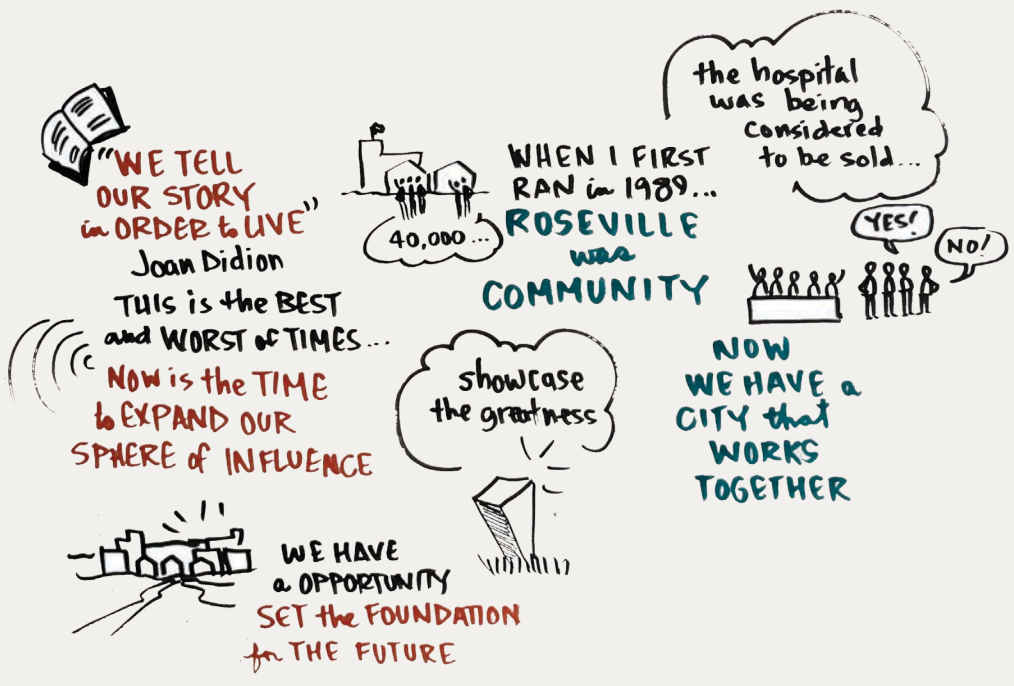 "WE TELL
OUR STORY
in ORDER to LIVE"
Joan Didion
THIS is the BEST
and WORST of TIMES...
NOW is the TIME
to EXPAND OUR
SPHERE of INFLUENCE
WE HAVE
a OPPORTUNITY
SET the FOUNDATION
for THE FUTURE
40,000...
WHEN I FIRST
RAN in 1989...
ROSEVILLE
was
COMMUNITY
showcase
the greatness
the hospital
was being
considered
to be sold...
YES!
NO!
NOW
WE HAVE a
CITY that
WORKS
TOGETHER